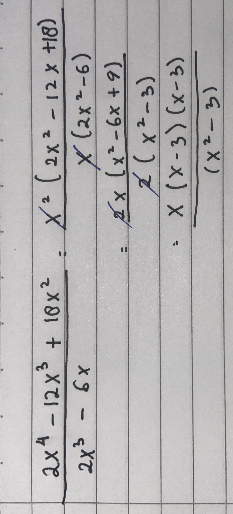 2x⁴ - 12x³ + 18x² = x² (2x² - 12x + 18)
2x³ - 6x x (2x² - 6)
= 2x (x² - 6x + 9)
2 (x² - 3)
= x (x - 3) (x - 3)
(x² - 3)